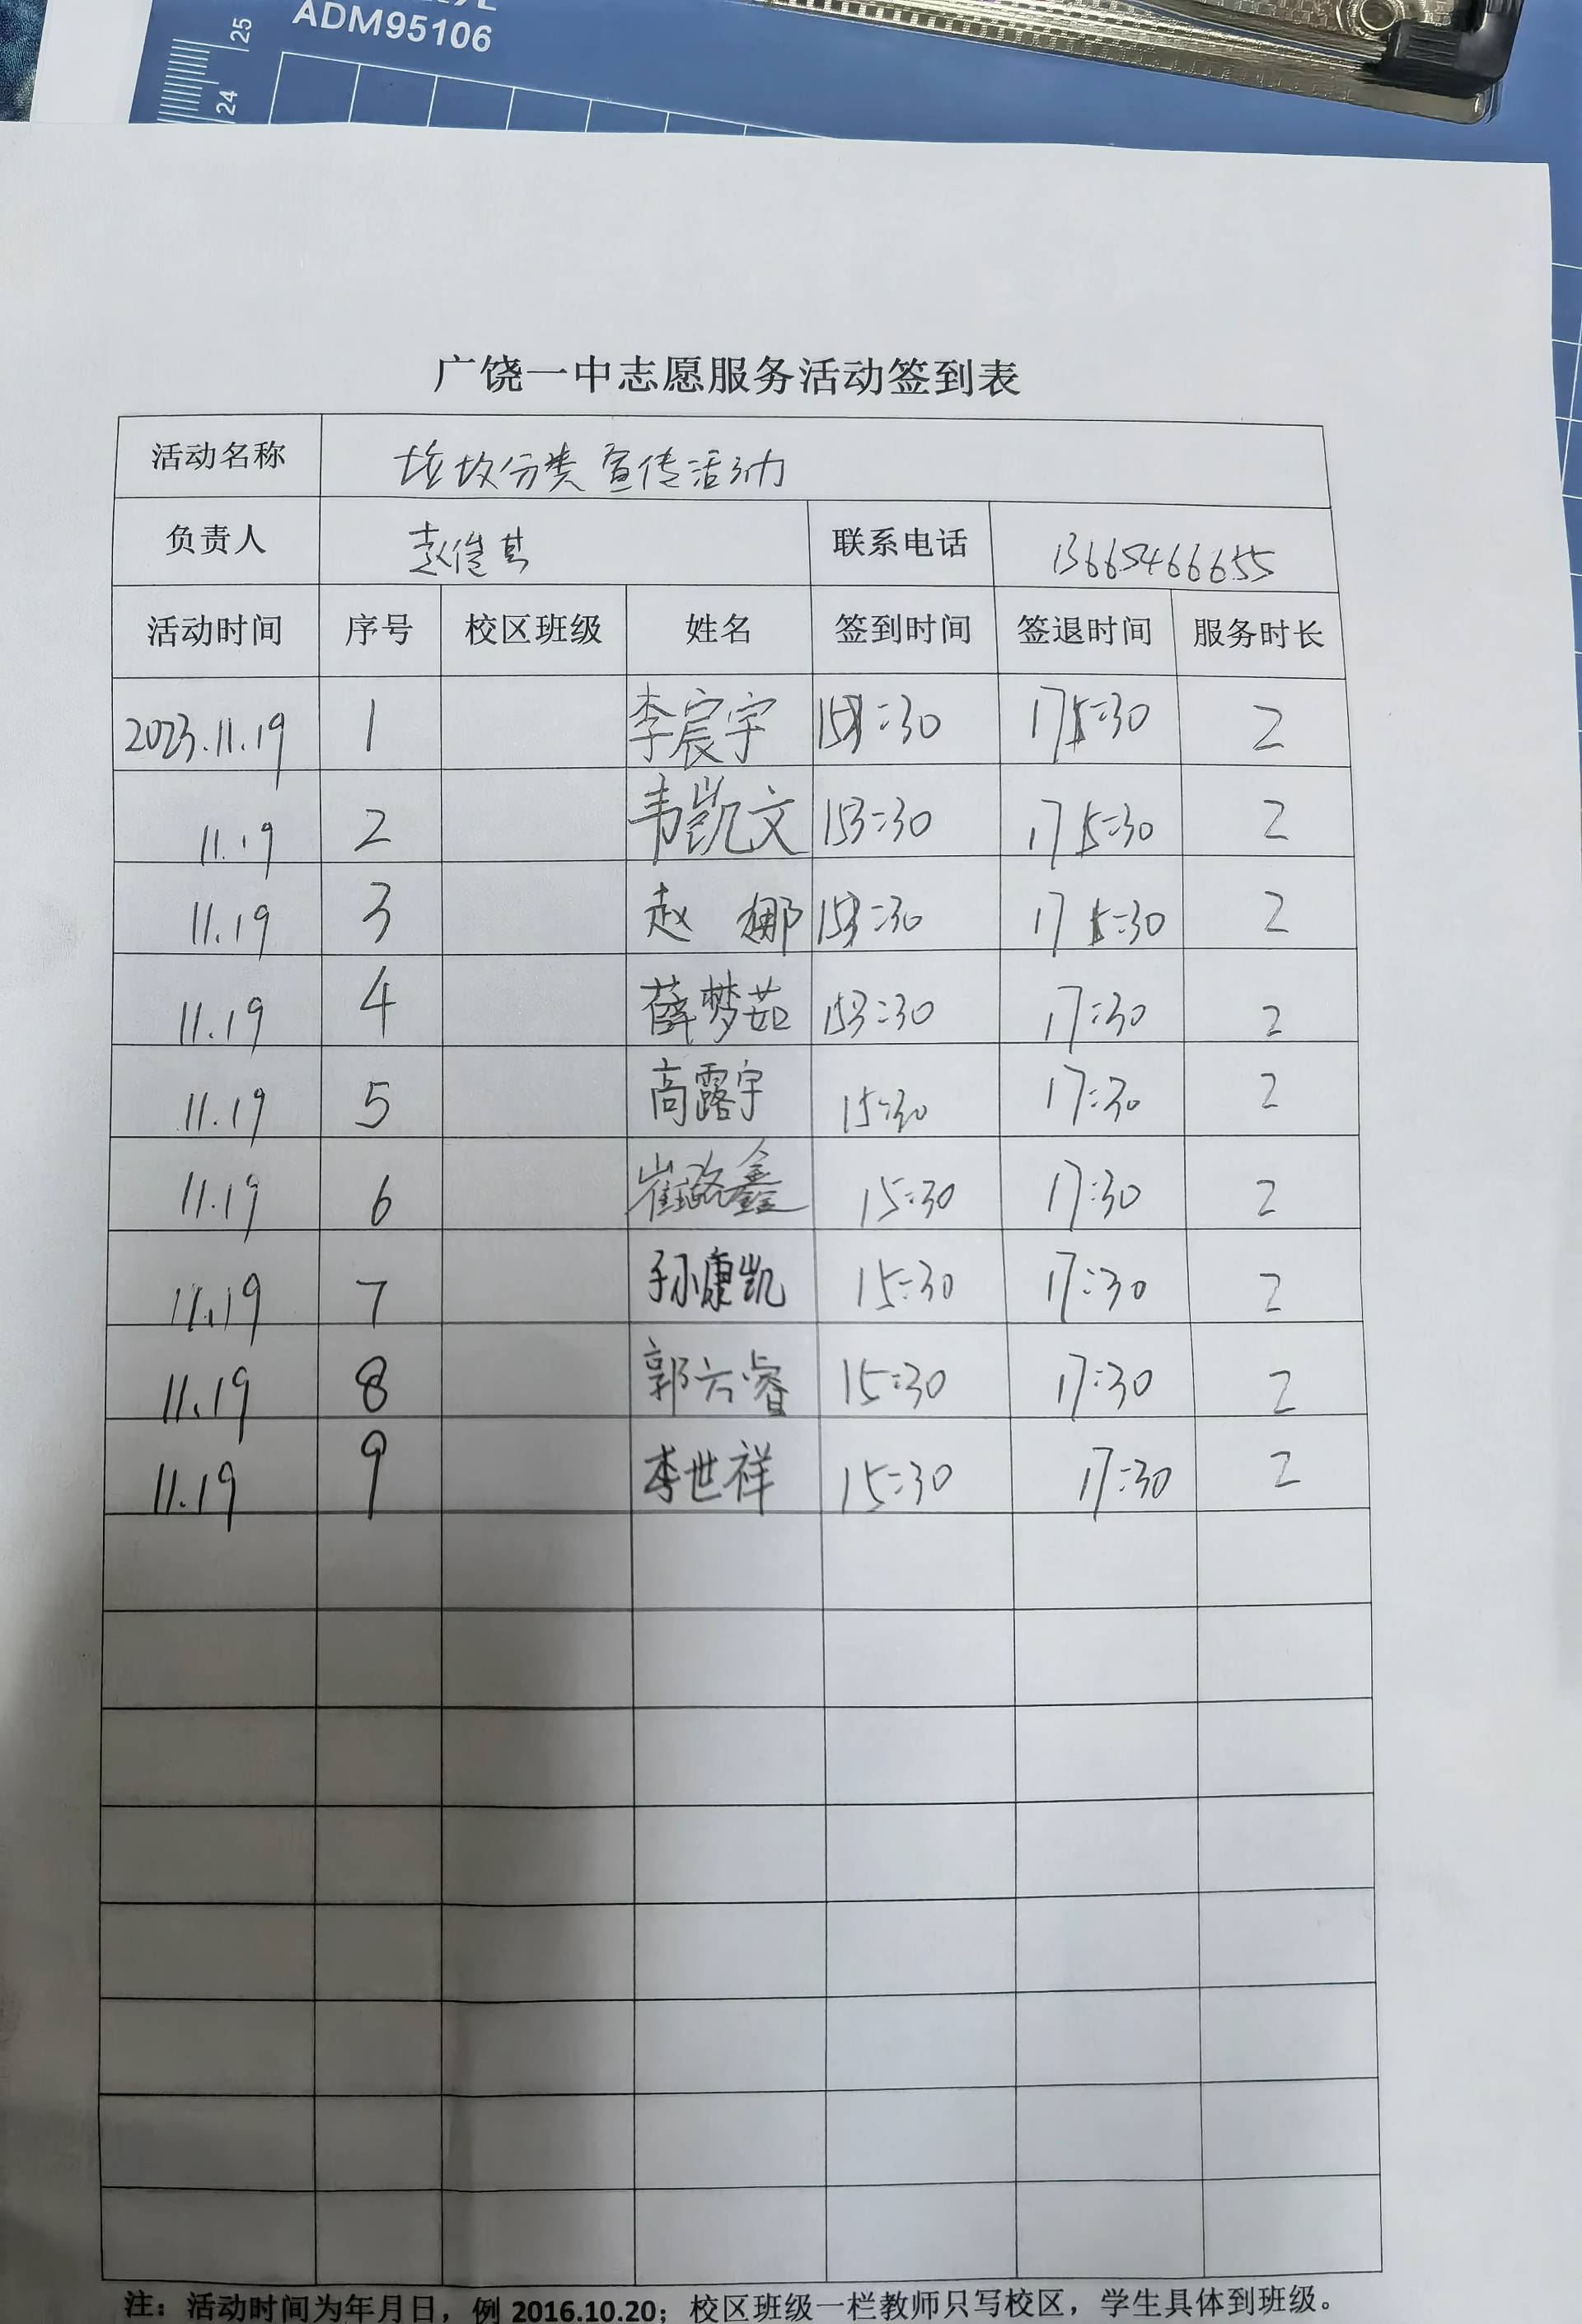 25
24
ADM95106
广饶一中志愿服务活动签到表
活动名称 垃圾分类宣传活动
负责人 赵俊其 联系电话 13665466655
活动时间 序号 校区班级 姓名 签到时间 签退时间 服务时长
2023.11.19 1 李宸宇 15:30 17:30 2
11.19 2 韦凯文 15:30 17:30 2
11.19 3 赵娜 15:30 17:30 2
11.19 4 薛梦茹 15:30 17:30 2
11.19 5 高露宇 15:30 17:30 2
11.19 6 崔璐鑫 15:30 17:30 2
11.19 7 孙康凯 15:30 17:30 2
11.19 8 郭云睿 15:30 17:30 2
11.19 9 李世祥 15:30 17:30 2
注：活动时间为年月日，例 2016.10.20；校区班级一栏教师只写校区，学生具体到班级。